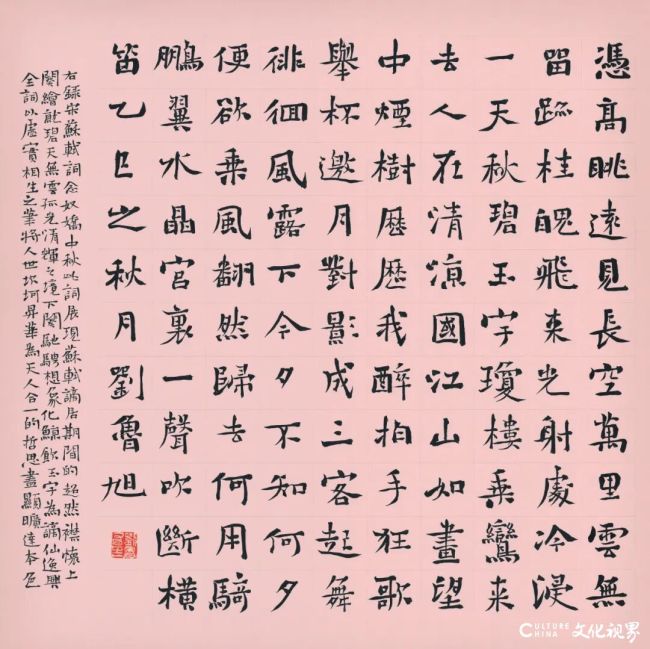 憑高眺遠見長空萬里雲無
留跡桂魄飛來光射處冷浸
一天秋碧玉宇瓊樓乘鸞來
去人在清涼國江山如畫望
中煙樹歷歷我醉拍手狂歌
舉杯邀月對影成三客起舞
徘徊風露下今夕不知何夕
便欲乘風翻然歸去何用騎
鵬翼水晶宮裏一聲吹斷橫
笛乙巳之秋月劉魯旭
右錄宋蘇軾詞念奴嬌中秋此詞展現蘇軾謫居期間的超然襟懷上
闋繪就碧天無雲孤光清輝之境下闋馳騁想象化鯨飲玉宇為謫仙逸興
全詞以虛實相生之筆將人世坎坷昇華為天人合一的哲思盡顯曠達本色
CULTURE CHINA 文化视界